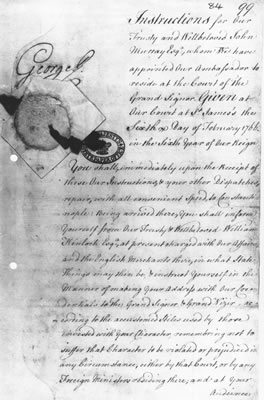 84 99
Instructions for Our
Trusty and Welbeloved John
Murray Esqr, whom We have
appointed Our Ambassador to
reside at the Court of the
Grand Signor. Given at
Our Court at St James's the
Sixth Day of February 1766.
in the Sixth Year of Our Reign
George R.
You shall, immediately upon the Receipt of
these Our Instructions, & your other Dispatches,
repair, with all convenient Speed, to Constanti-
nople: Being arrived there, You shall inform
Yourself from Our Trusty & Welbeloved William
Kinloch Esqr, at present charged with Our Affairs,
and the English Merchants there, in what State
Things may then be, & instruct Yourself in the
Manner of making Your Address with Our Cre-
dentials to the Grand Signor & Grand Vizir, ac-
cording to the accustomed Stiles used by those
invested with Your Character, remembring not to
suffer that Character to be violated or prejudiced in
any Circumstance, either by that Court, or by any
Foreign Ministers residing there, and at Your
Audiences